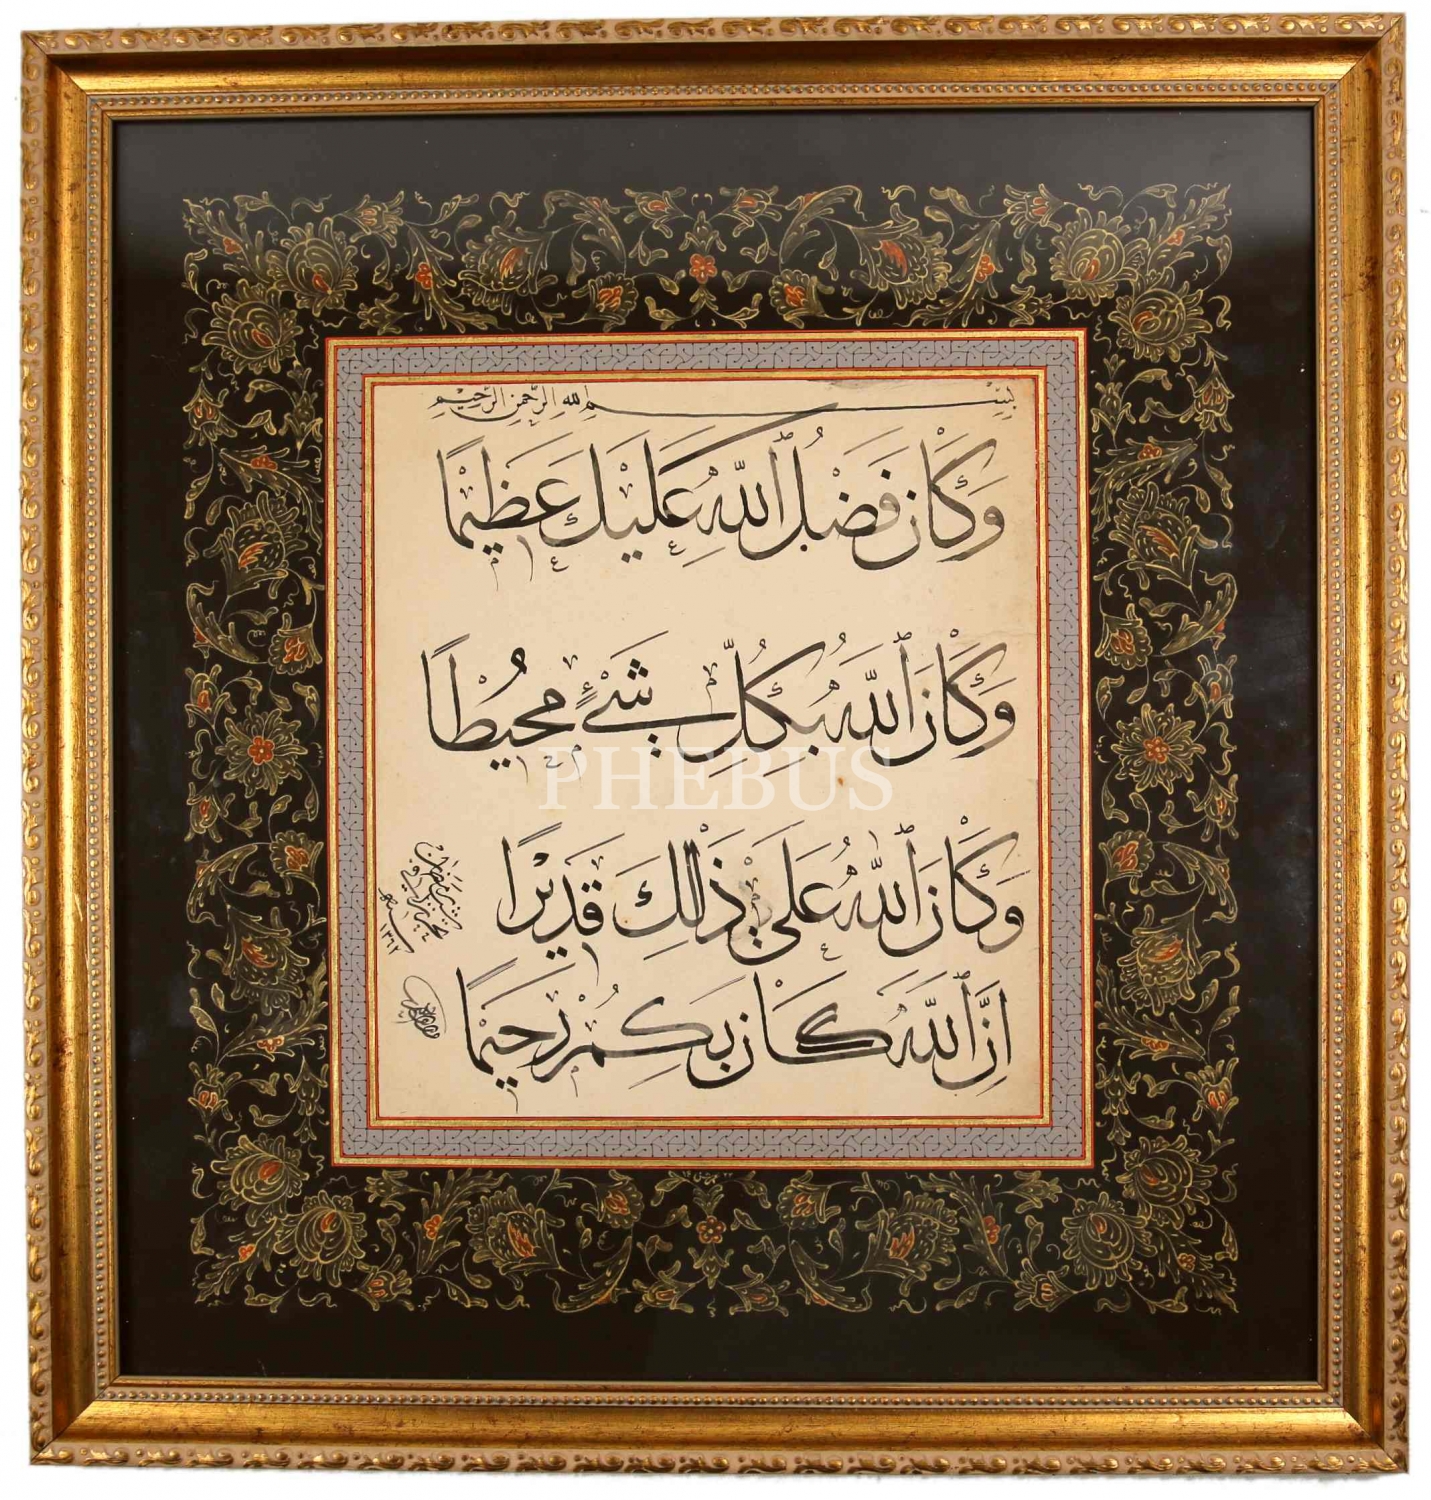 بِسْمِ اللهِ الرَّحْمٰنِ الرَّحِيمِ
وَكَانَ فَضْلُ اللّٰهِ عَلَيْكَ عَظِيمًا
وَكَانَ اللّٰهُ بِكُلِّ شَيْءٍ مُحِيطًا
PHEBUS
وَكَانَ اللّٰهُ عَلَى ذٰلِكَ قَدِيرًا
اِنَّ اللّٰهَ كَانَ بِكُمْ رَحِيمًا